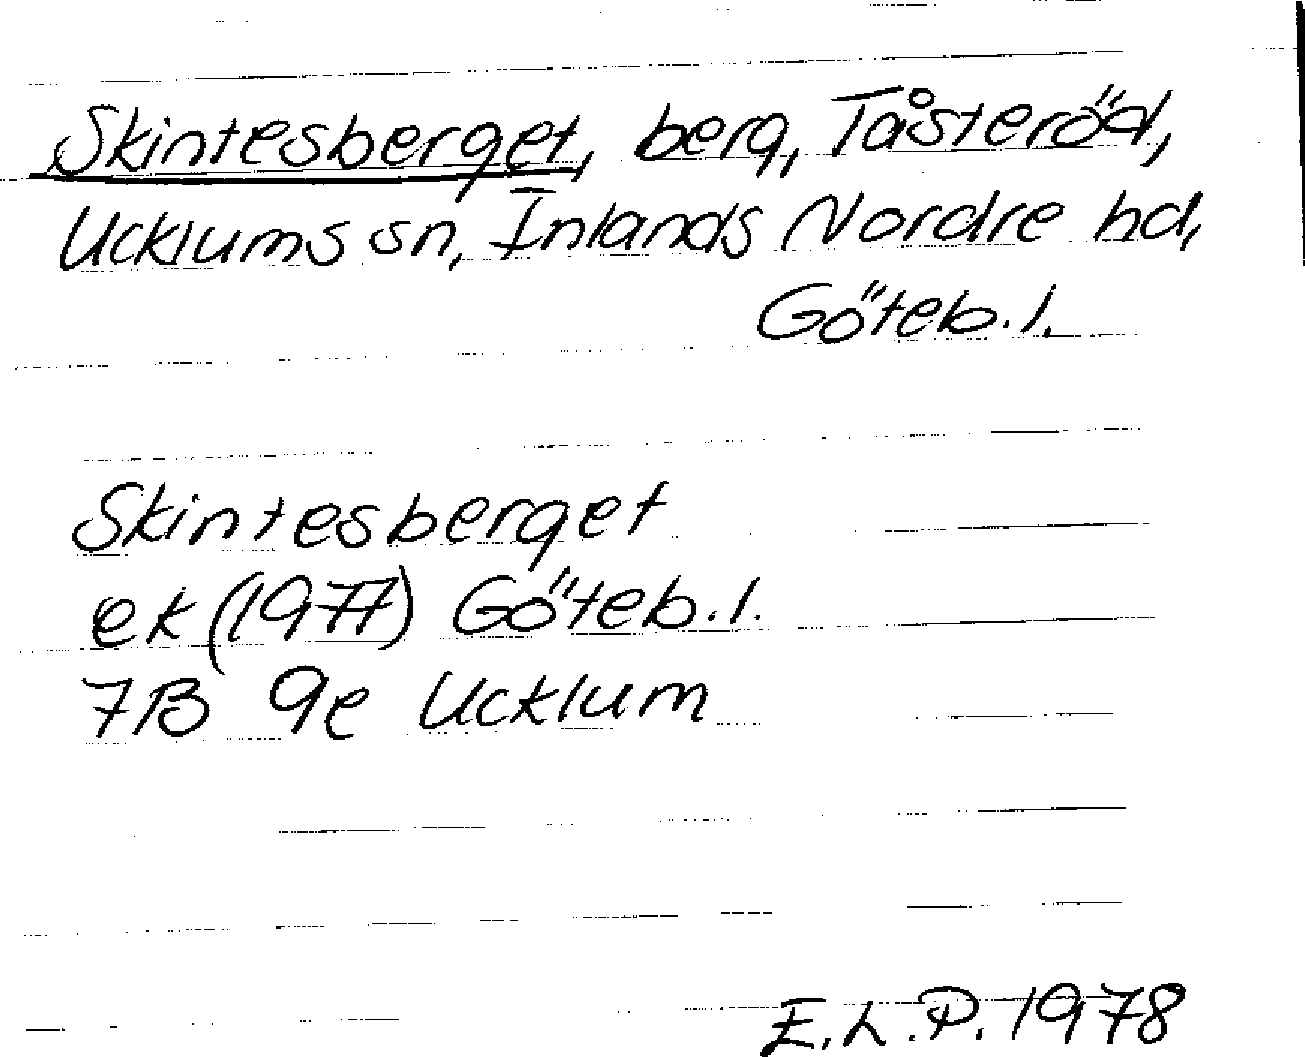 Skintesberget, berg, Tåsteröd,
Ucklums sn, Inlands Nordre hd,
Göteb. l.
Skintesberget
ek (1977) Göteb. l.
7B 9e Ucklum
E.L.P. 1978